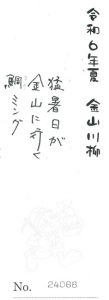 令和6年夏 金山川柳
猛暑日が
金山に行く
鯛ミング
No. 24066